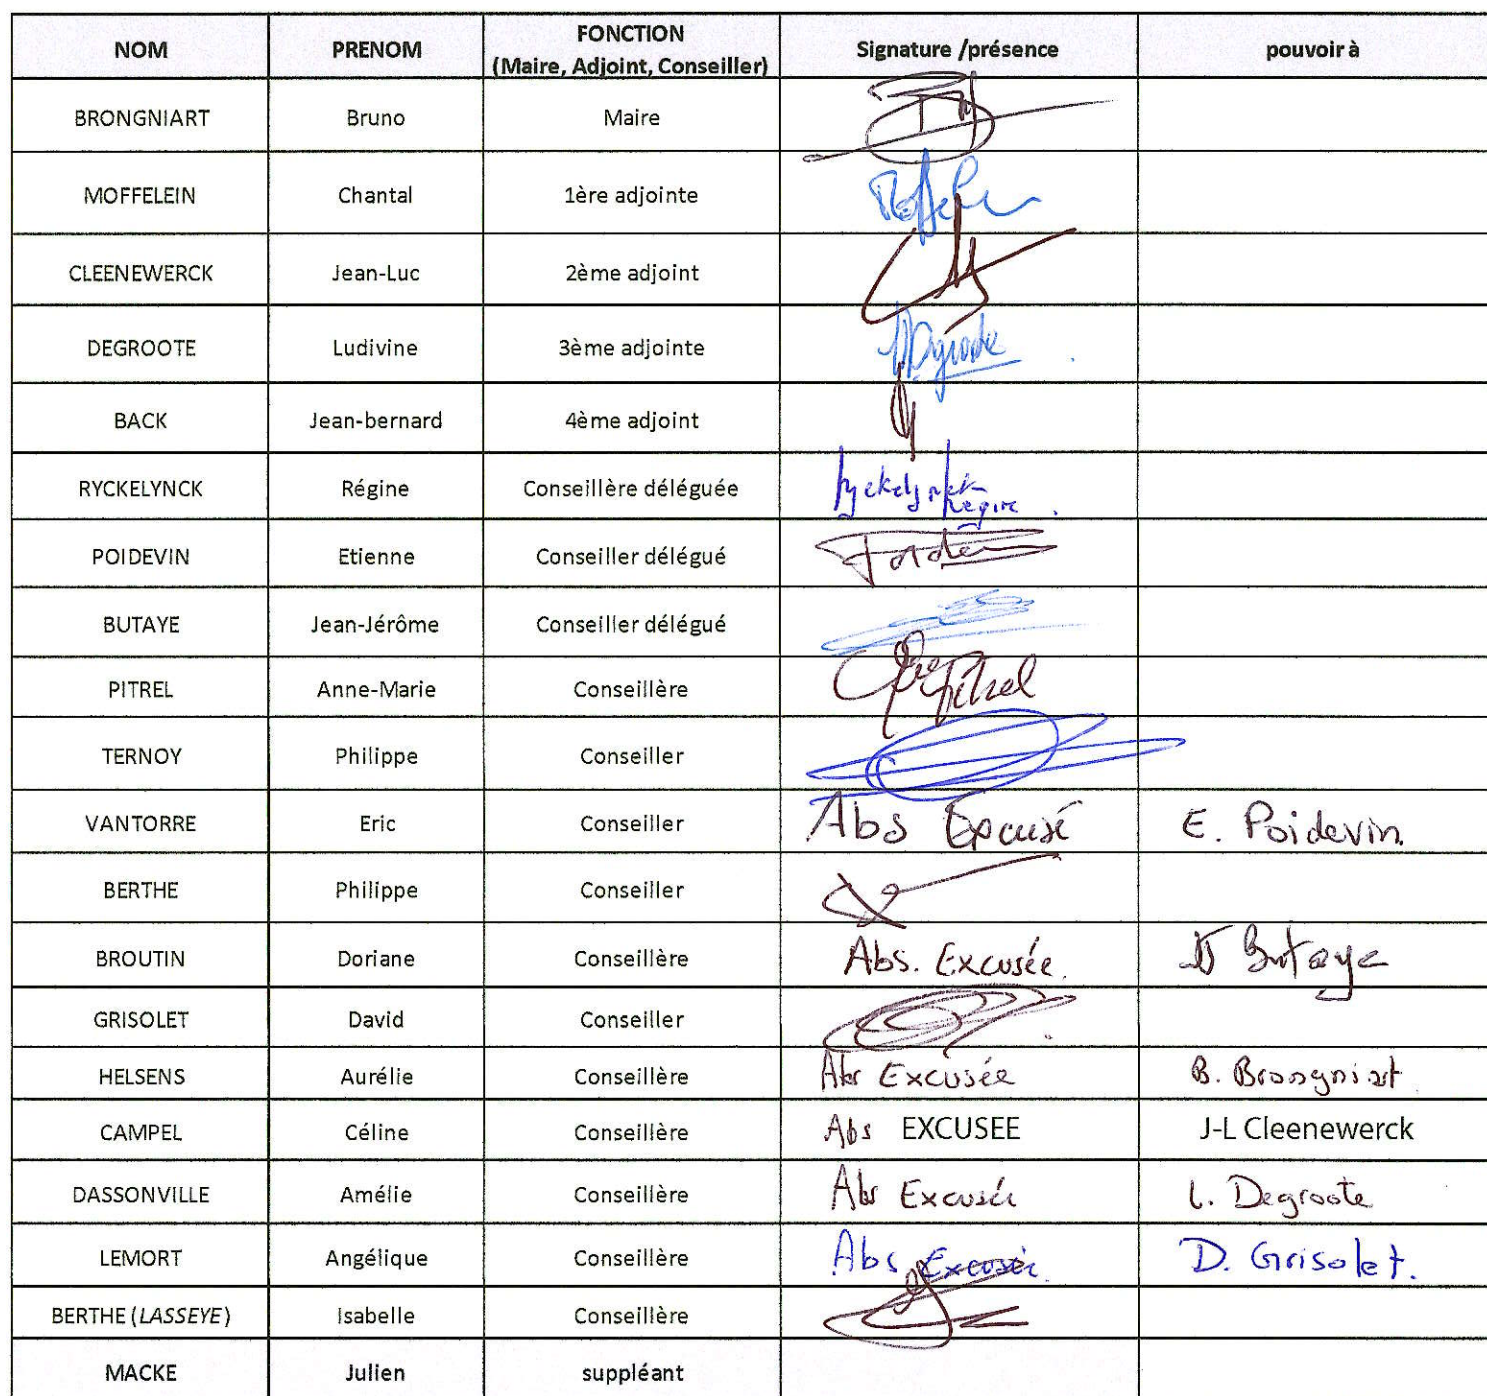 NOM PRENOM FONCTION (Maire, Adjoint, Conseiller) Signature /présence pouvoir à
BRONGNIART Bruno Maire
MOFFELEIN Chantal 1ère adjointe
CLEENEWERCK Jean-Luc 2ème adjoint
DEGROOTE Ludivine 3ème adjointe
BACK Jean-bernard 4ème adjoint
RYCKELYNCK Régine Conseillère déléguée Ryckelynck Régine
POIDEVIN Etienne Conseiller délégué
BUTAYE Jean-Jérôme Conseiller délégué
PITREL Anne-Marie Conseillère Pitrel
TERNOY Philippe Conseiller
VANTORRE Eric Conseiller Abs Excusé E. Poidevin.
BERTHE Philippe Conseiller
BROUTIN Doriane Conseillère Abs. Excusée. Butaye
GRISOLET David Conseiller
HELSENS Aurélie Conseillère Abs Excusée B. Brongniart
CAMPEL Céline Conseillère Abs EXCUSEE J-L Cleenewerck
DASSONVILLE Amélie Conseillère Abs Excusée L. Degroote
LEMORT Angélique Conseillère Abs Excusée D. Grisolet.
BERTHE (LASSEYE) Isabelle Conseillère
MACKE Julien suppléant